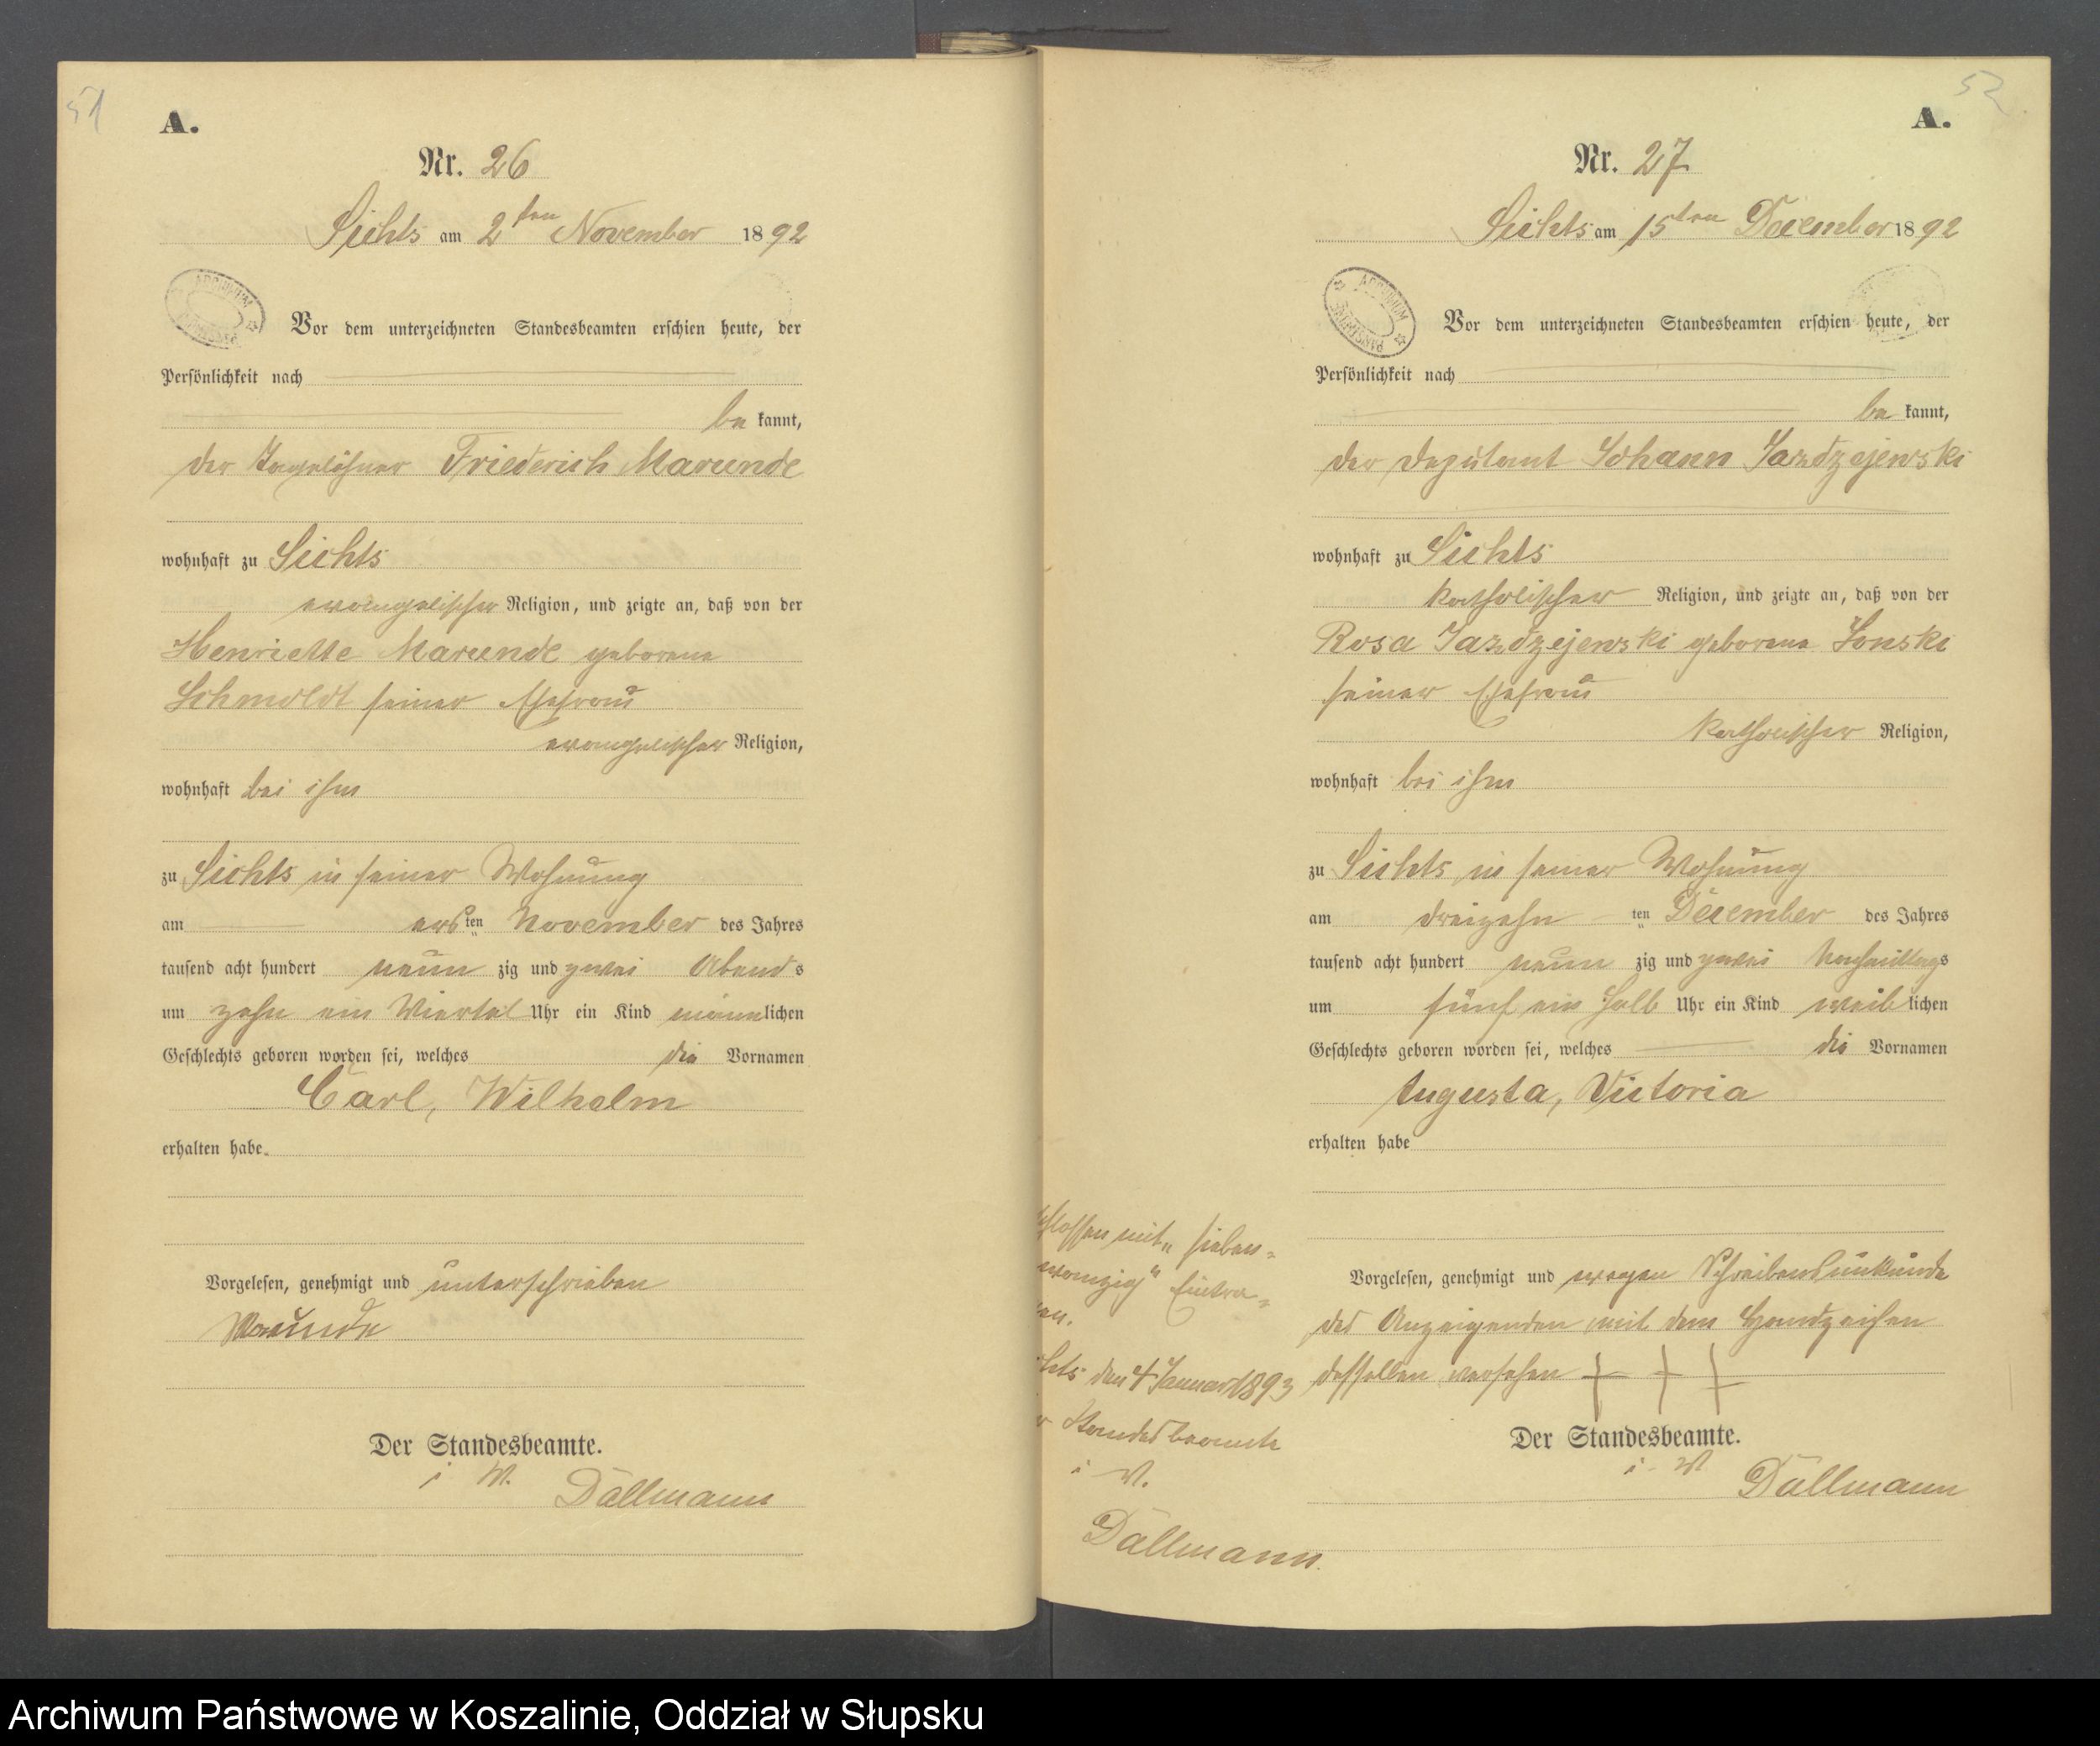 51
A.
Nr. 26
Sichts am 2ten November 1892
Vor dem unterzeichneten Standesbeamten erschien heute, der
Persönlichkeit nach
be kannt,
der Tagelöhner Friederich Marunde
wohnhaft zu Sichts
evangelischer Religion, und zeigte an, daß von der
Henriette Marunde geborene
Schmoldt seiner Ehefrau
evangelischer Religion,
wohnhaft bei ihm
zu Sichts in seiner Wohnung
am ersten November des Jahres
tausend acht hundert neun zig und zwei Abends
um zehn ein Viertel Uhr ein Kind männlichen
Geschlechts geboren worden sei, welches die Vornamen
Carl, Wilhelm
erhalten habe.
Vorgelesen, genehmigt und unterschrieben
Marunde
Der Standesbeamte.
i. V.
Dallmann
52
A.
Nr. 27
Sichts am 15ten December 1892
ARCHIWUM PAŃSTWOWE
Vor dem unterzeichneten Standesbeamten erschien heute, der
Persönlichkeit nach
be kannt,
der Deputant Johann Jazdzejewski
wohnhaft zu Sichts
katholischer Religion, und zeigte an, daß von der
Rosa Jazdzejewski geborene Jonski
seiner Ehefrau
katholischer Religion,
wohnhaft bei ihm
zu Sichts in seiner Wohnung
am dreizehn ten December des Jahres
tausend acht hundert neun zig und zwei Nachmittags
um fünf ein halb Uhr ein Kind weiblichen
Geschlechts geboren worden sei, welches die Vornamen
Augusta, Victoria
erhalten habe
Vorgelesen, genehmigt und wegen Schreibensunkunde
des Anzeigenden mit dem Handzeichen
desselben versehen + + +
Der Standesbeamte.
i. V.
Dallmann
schlossen mit „sieben=
wanzig" Eintra=
gen.
chts den 4 Januar 1893
r Standesbeamte
i. V.
Dallmann.
Archiwum Państwowe w Koszalinie, Oddział w Słupsku